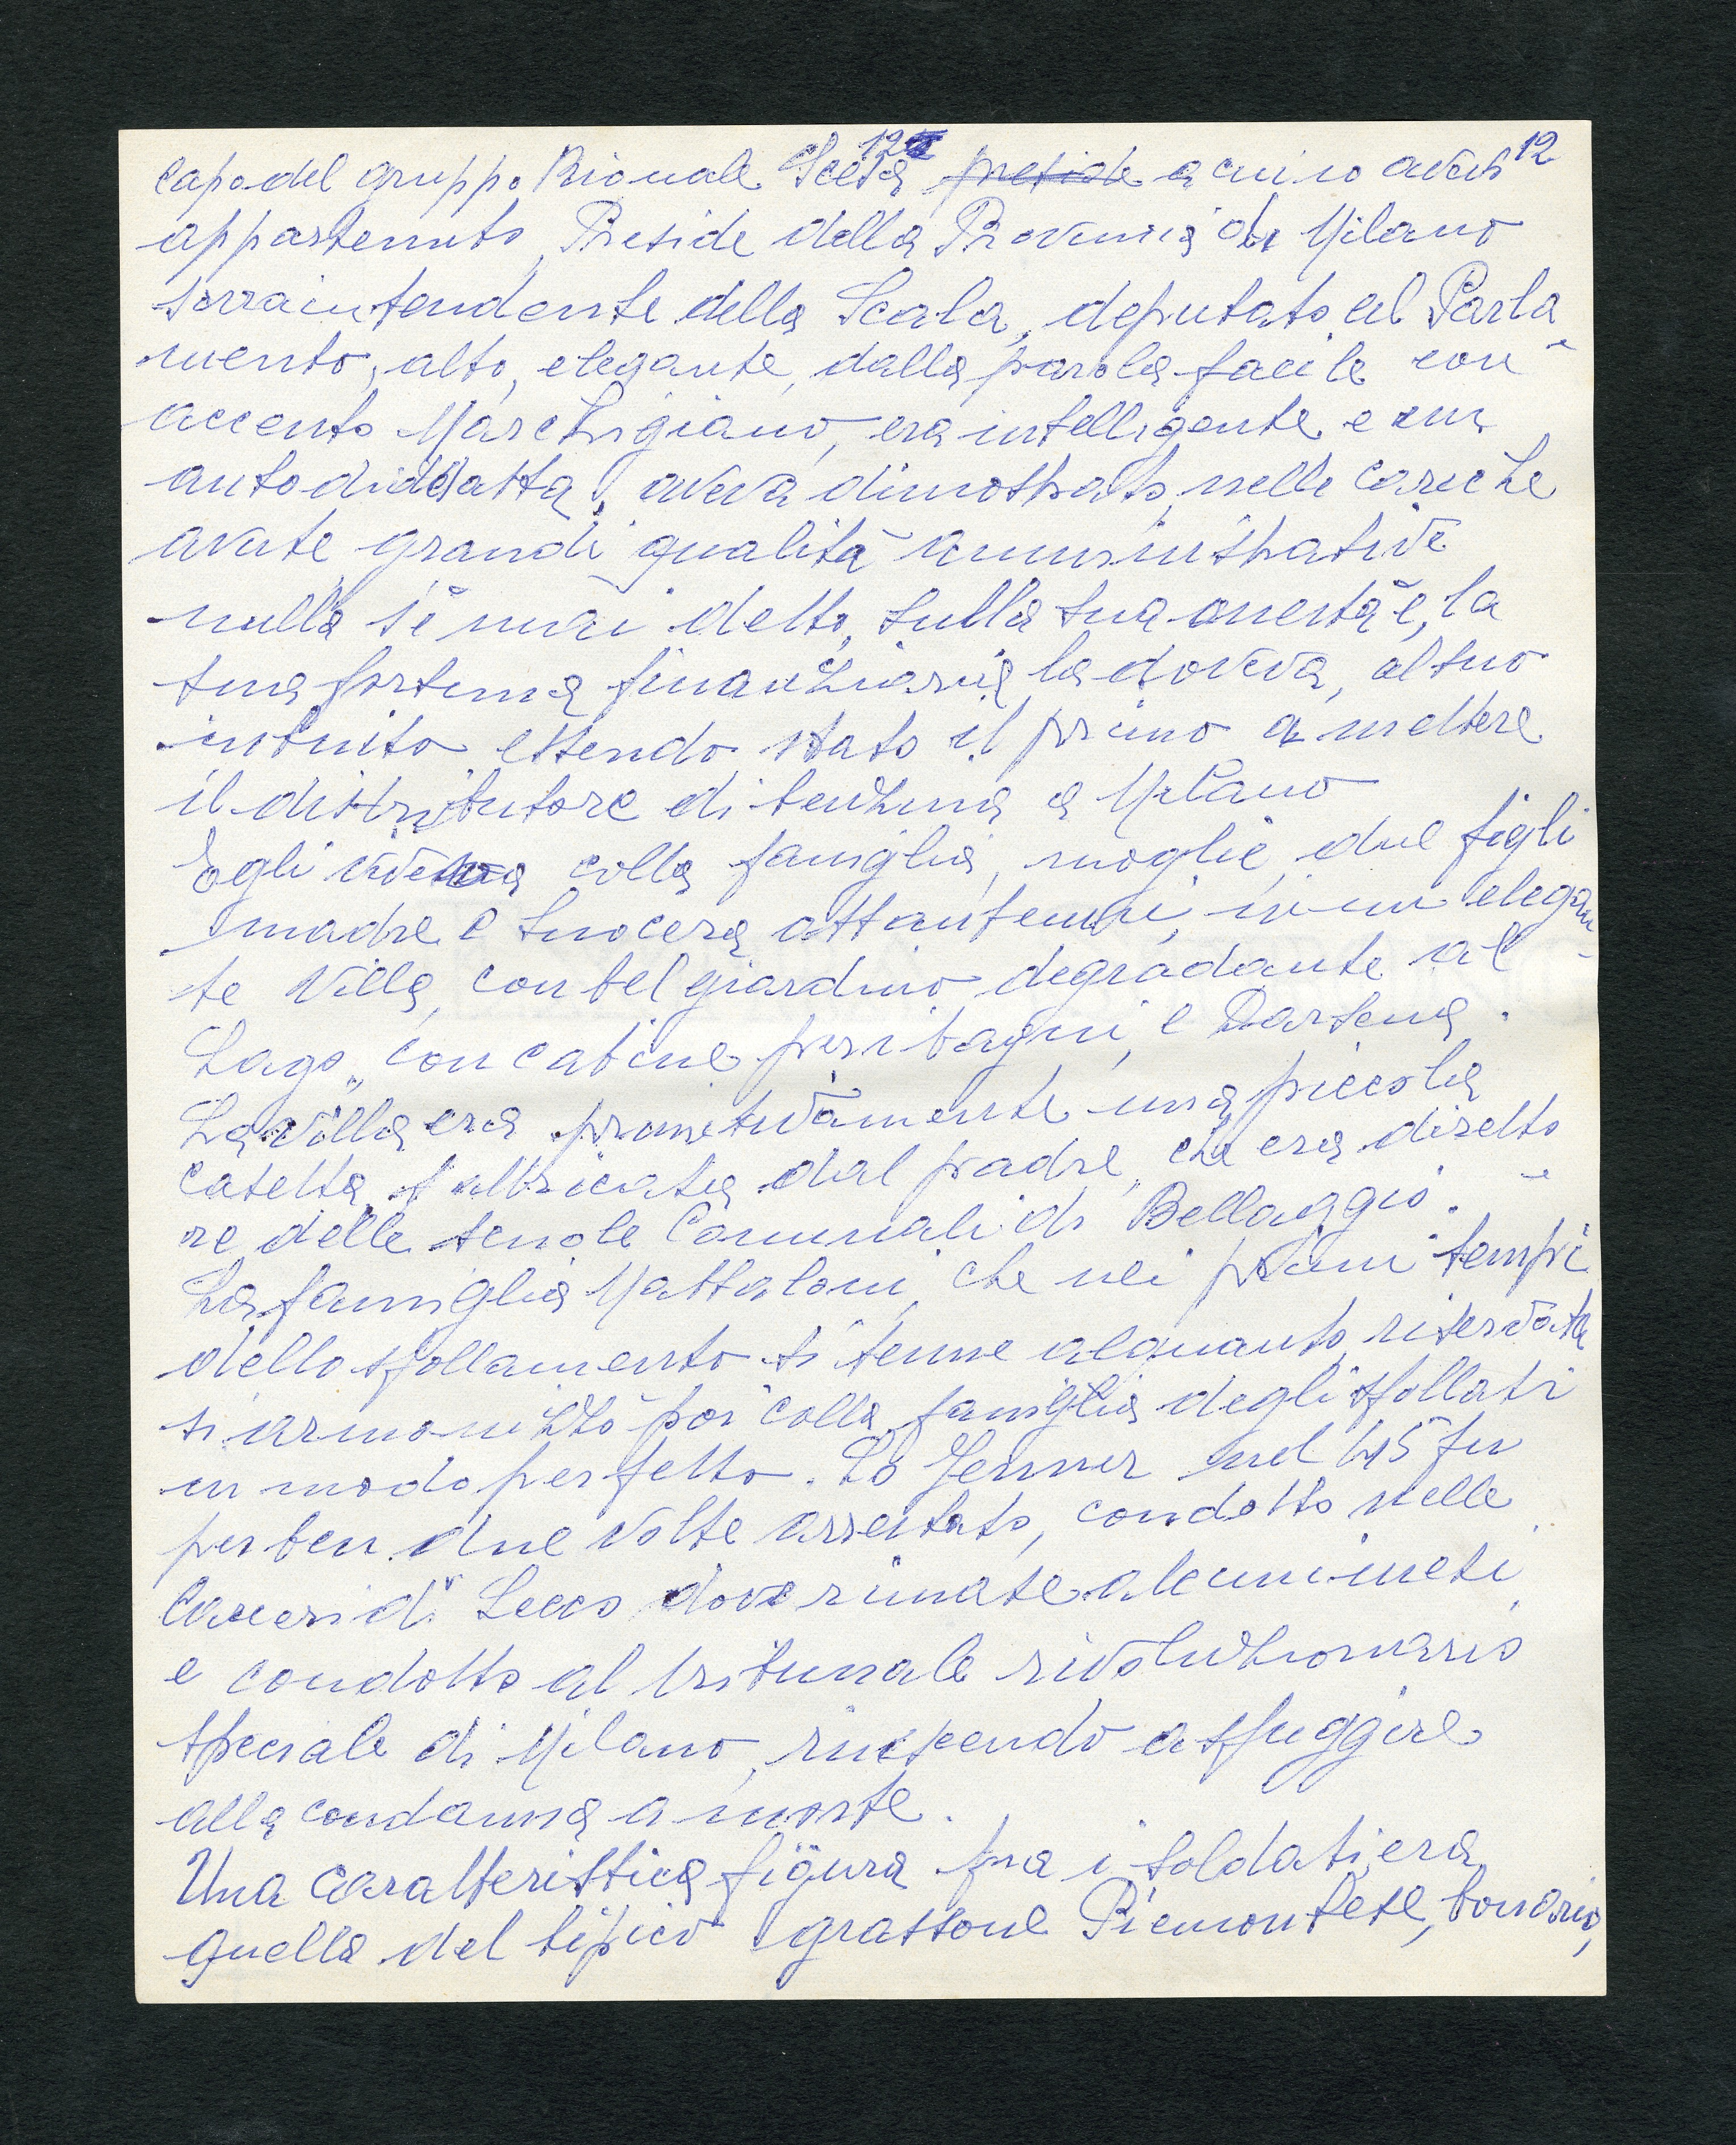 12 12
capo del gruppo Rionale Sciesa preside a cui io avevo
appartenuto, Preside della Provincia di Milano
sovraintendente della Scala, deputato al Parla
mento, alto, elegante, dalla parola facile con
accento Marchigiano, era intelligente e un
autodidatta, aveva dimostrato, nelle cariche
avute grandi qualità amministrative
nulla s'è mai detto, sulla sua onestà e, la
sua fortuna finanziaria la doveva, al suo
intuito essendo stato il primo a mettere
il distributore di benzina a Milano
Egli viveva colla famiglia, moglie due figli
madre e suocera ottantenni, in un elegan
te Villa, con bel giardino degradante al
Lago, con cabine per i bagni, e Darsena.
La villa era primitivamente una piccola
casetta, fabbricata dal padre, che era diretto
re delle scuole Comunali di Bellaggio.
La famiglia Mattaloni, che nei primi tempi
dello sfollamento si tenne alquanto riservata
si armonizzò poi colla famiglia degli sfollati
in modo perfetto. Lo Jenner nel 45 fu
per ben due volte arrestato, condotto nelle
Carceri di Lecco dove rimase alcuni mesi,
e condotto al tribunale rivoluzionario
speciale di Milano, riuscendo a sfuggire
alla condanna a morte.
Una caratteristica figura fra i soldati, era
quella del tipico grassone Piemontese, bonario,